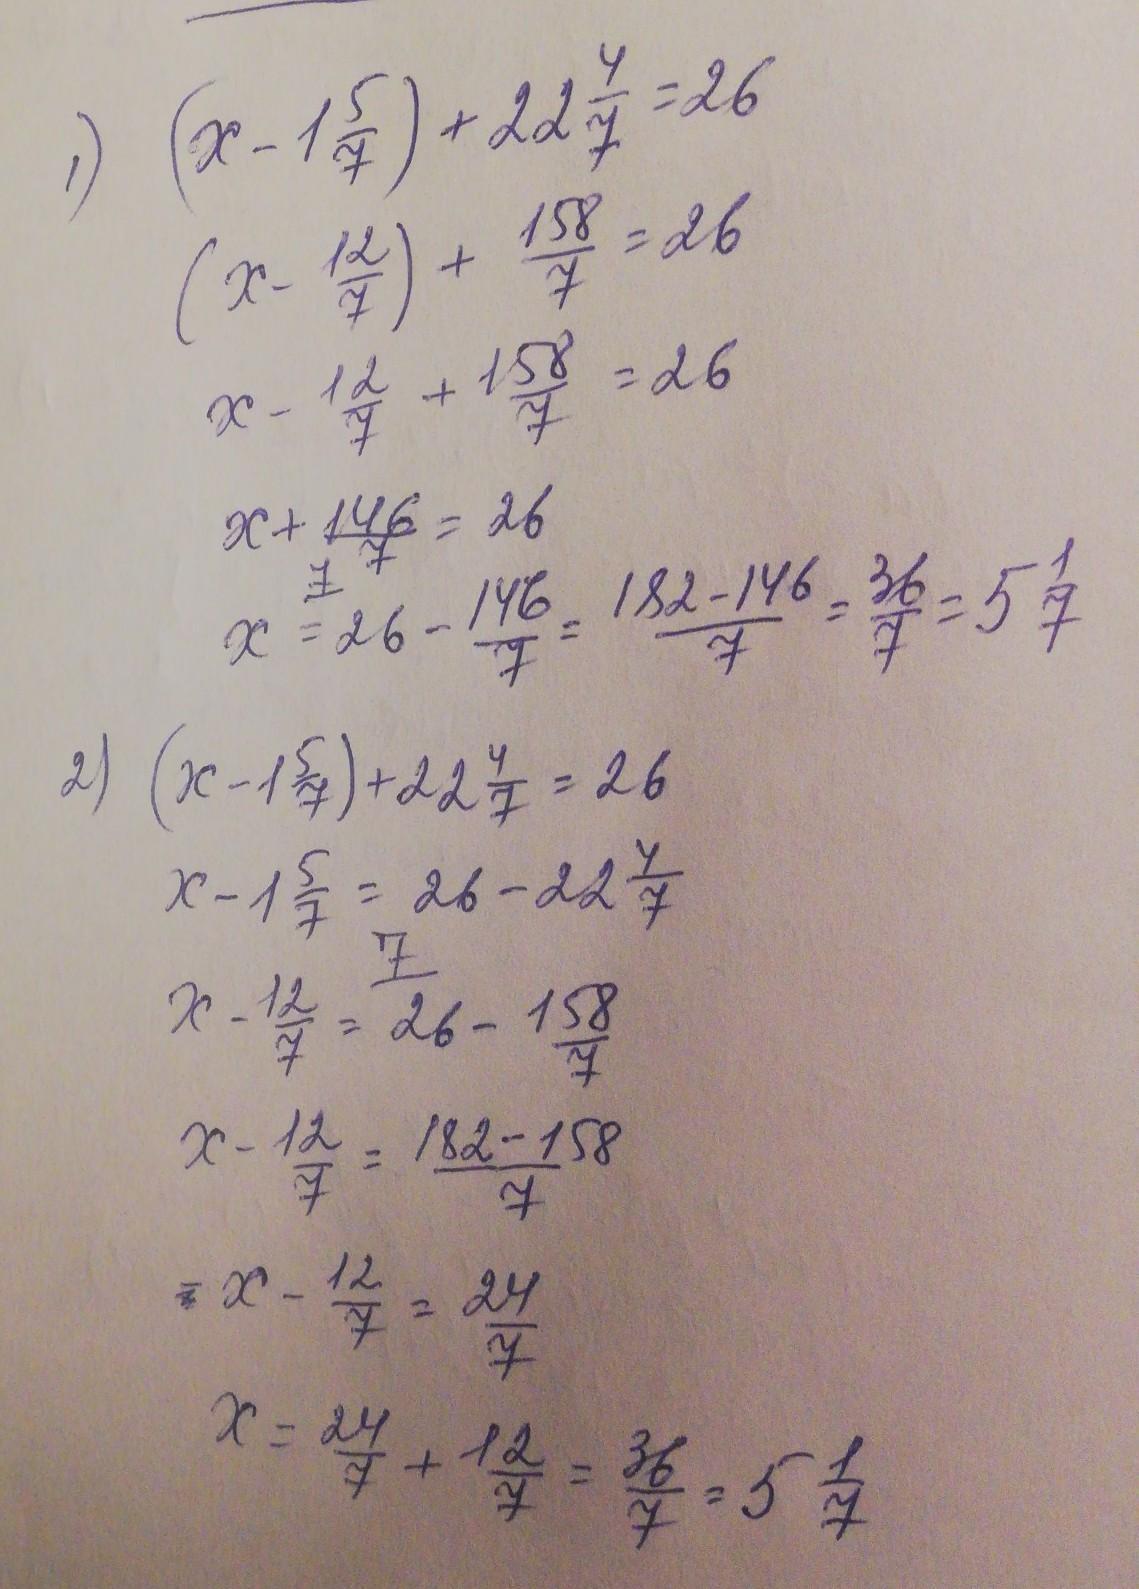 1) (x - 1 5/7) + 22 4/7 = 26
(x - 12/7) + 158/7 = 26
x - 12/7 + 158/7 = 26
x + 146/7 = 26
7
x = 26 - 146/7 = 182-146/7 = 36/7 = 5 1/7
2) (x - 1 5/7) + 22 4/7 = 26
x - 1 5/7 = 26 - 22 4/7
7
x - 12/7 = 26 - 158/7
x - 12/7 = 182-158/7
x - 12/7 = 24/7
x = 24/7 + 12/7 = 36/7 = 5 1/7